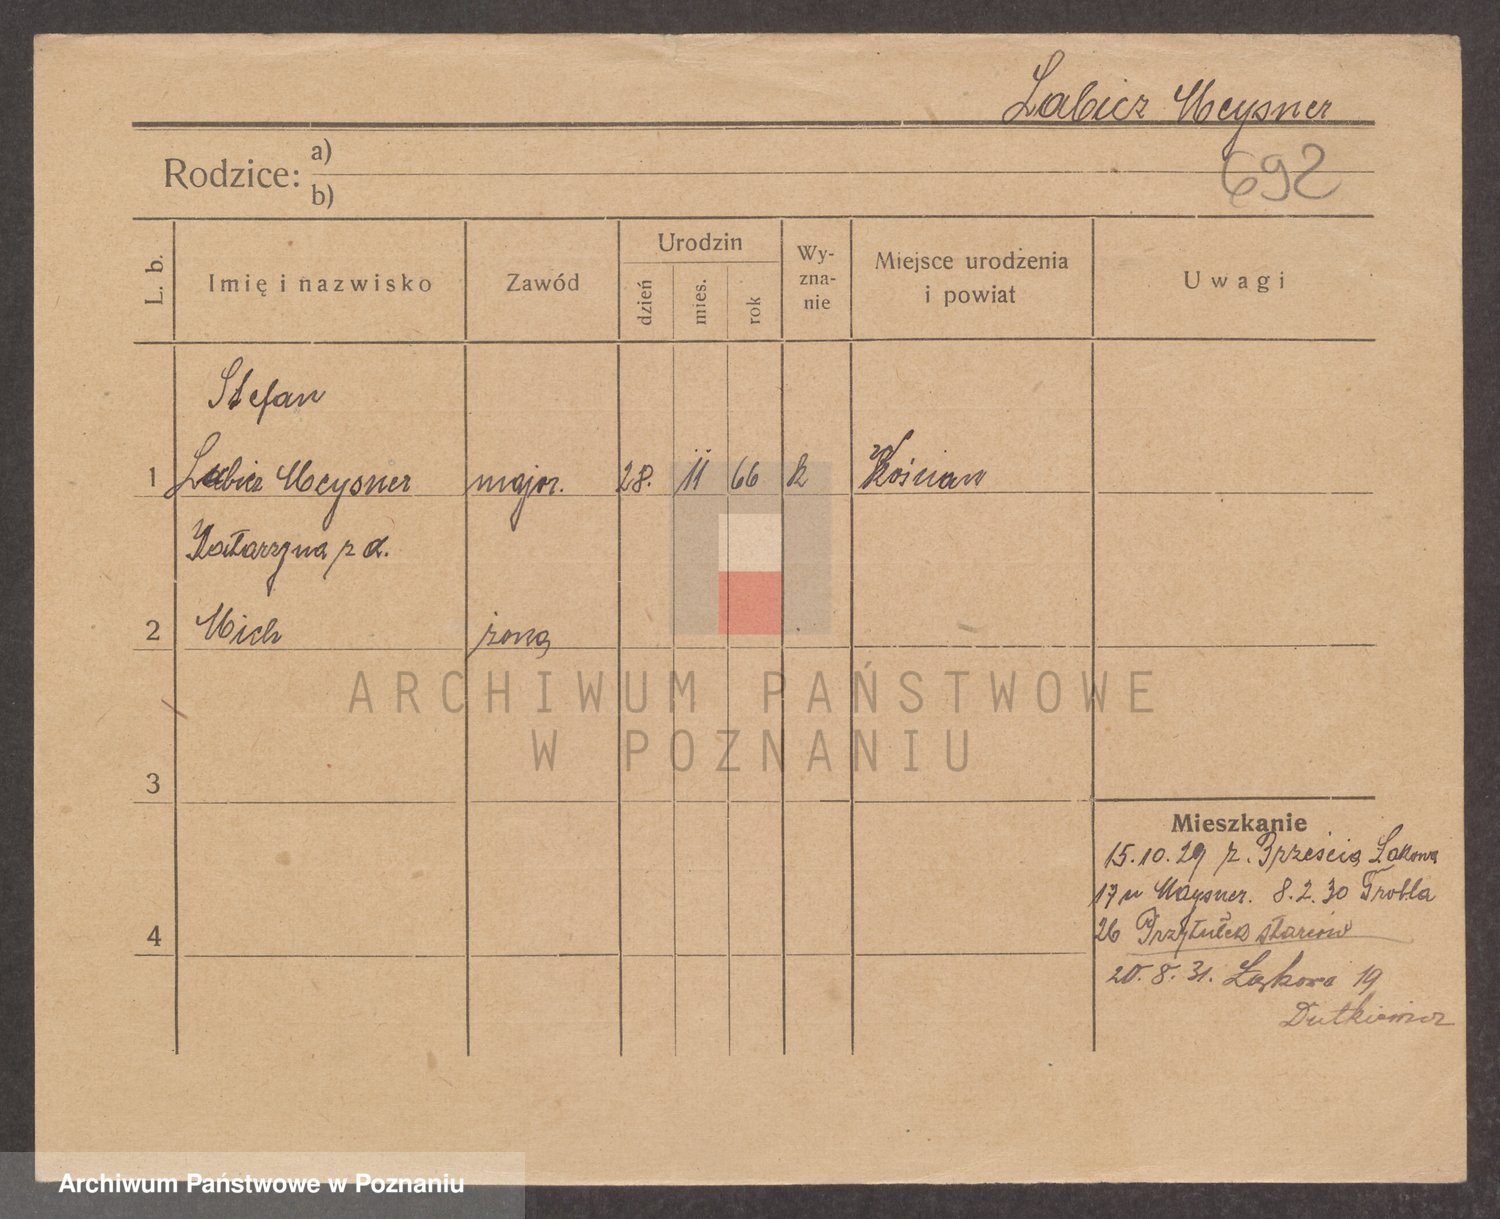 Labicz Meysner
692
Rodzice: a)
b)
L. b.
Imię i nazwisko
Zawód
Urodzin
dzień
mies.
rok
Wy-
zna-
nie
Miejsce urodzenia
i powiat
Uwagi
Stefan
1 Labicz Meysner major. 28. 11 66 k Kościan
Katarzyna z d.
2 Mich żona
3
4
Mieszkanie
15.10.29 z. Brześcia Łąkowa
17 u Maysner. 8.2.30 Grobla
26 Przytułek starców
20.8.31. Łąkowa 19
Dutkiewicz
ARCHIWUM PAŃSTWOWE
W POZNANIU
Archiwum Państwowe w Poznaniu